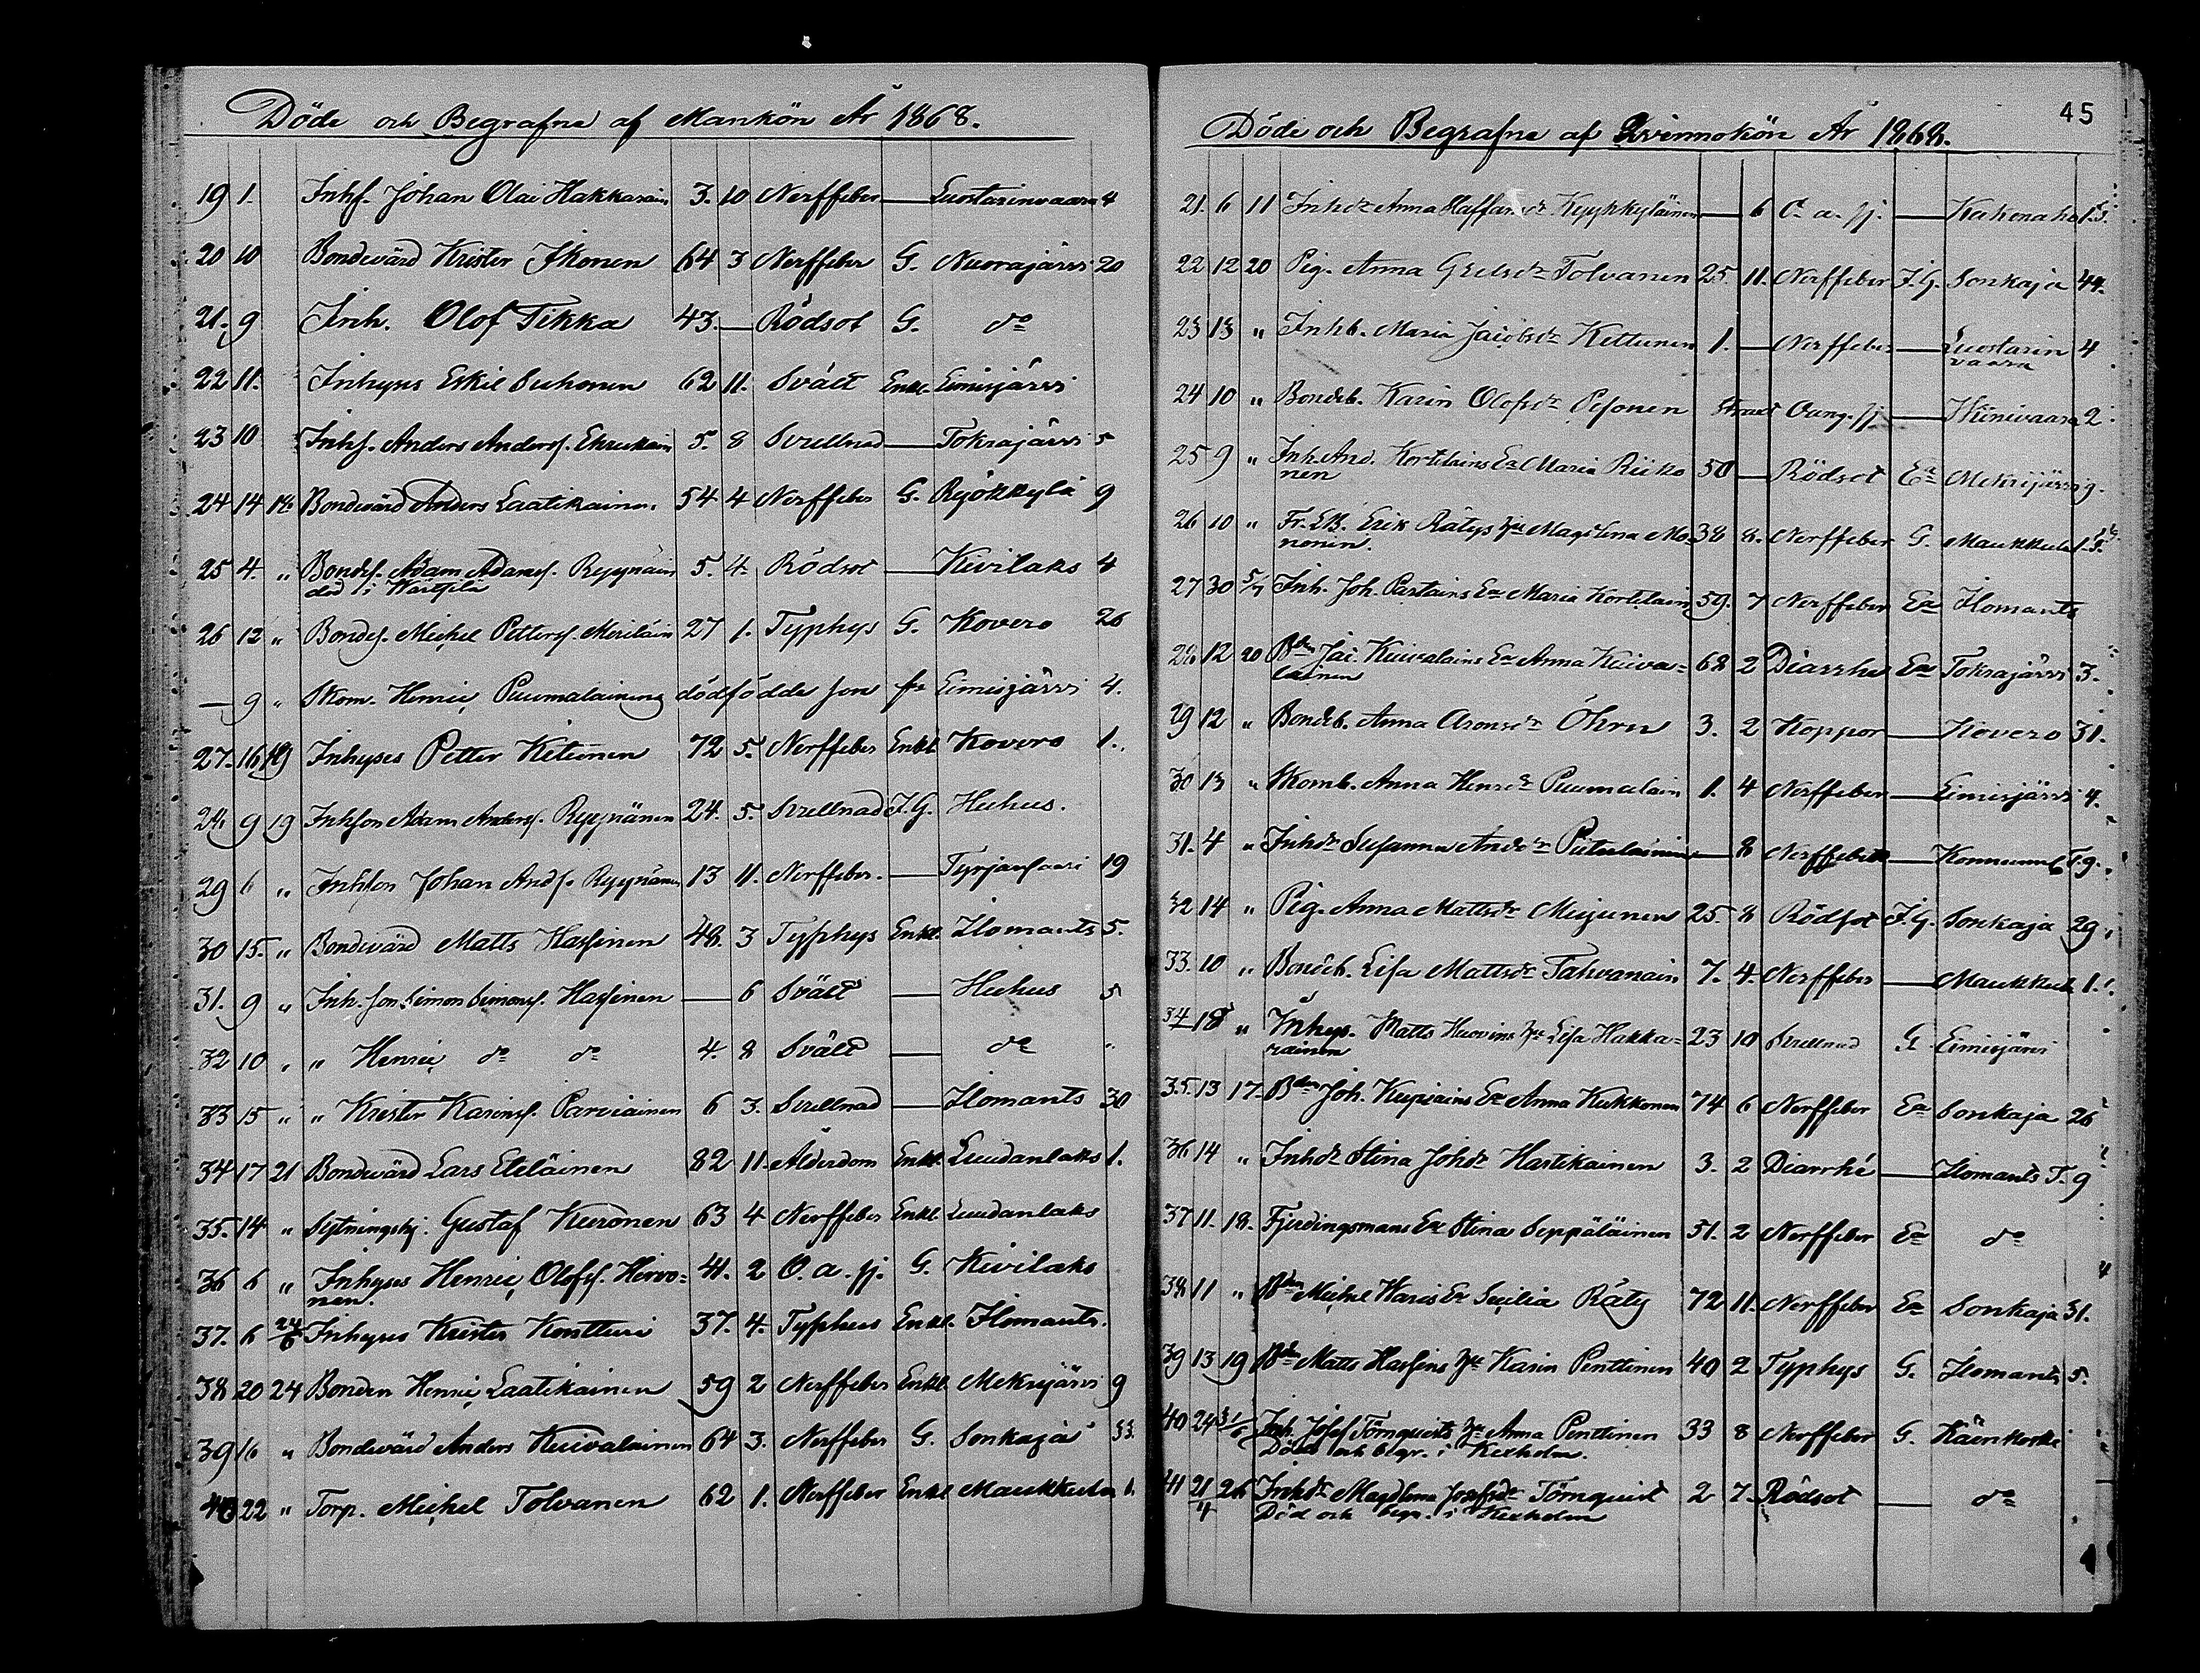 Döde och Begrafne af Mankön År 1868.
19 1. Inhs. Johan Olai Hakkarain 3. 10 Nerffeber — Luostarinvaara 4
20 10 Bondevärd Krister Ikonen 64 3 Nerffeber G. Nuorajärvi 20
21. 9 Inh. Olof Tikka 43. — Rödsot G. do
22 11. Inhyses Eskil Suhonen 62 11. Svält Enkl. Eimisjärvi
23 10 Inhs. Anders Anders. 5. 8 Svullnad — Tokrajärvi 5
24 14 Bondevärd Anders Laatikainen 54 4 Nerffeber G. Ryökkylä 9
25 4. " Bonds. Adam Adams. Ryynäin 5. 4. Rödsot — Kivilaks 4
död i Wärtsilä
26 12 " Bondes. Michel Petters. Meriläin 27 1. Typhus G. Kovero 26
— 9 " Skom. Henric Puumalainens dödfödde son fr Eimisjärvi 4.
27. 16 19 Inhyses Petter Ketunen 72 5. Nerffeber Enkl. Kovero 1.
28 9 19 Inhson Adam Anders. Ryynänen 24. 5. Svullnad I.G. Huhus.
29 6 " Inhson Johan Ands. Ryynänen 13 11. Nerffeber. — Tyrjänsaari 19
30 15. " Bondevärd Matts Hassinen 48. 3 Typhys Enkl. Ilomants 5.
31. 9 " Inh. son Simon Simons. Hassinen — 6 Svält — Huhus 5
32 10 " " Henric do do 4. 8 Svält — do "
33 15 " " Krister Karins. Parviainen 6 3. Svullnad — Ilomants 30
34 17 21 Bondevärd Lars Eteläinen 82 11. Ålderdom Enkl. Luudanlaks 1.
35. 14 " Sytningshj. Gustaf Kuronen 63 4 Nerffeber Enkl Luudanlaks
36 6 " Inhyses Henric Olofs. Hirvo-
nen. 41. 2 O. a. sj. G. Kivilaks
37. 6 24/5 Inhyses Krister Kontturi 37. 4. Typhus Enkl. Ilomants.
38 20 24 Bonden Henric Laatikainen 59 2 Nerffeber Enkl. Mekrijärvi 9
39 16 " Bondevärd Anders Kuivalainen 64 3. Nerffeber G. Sonkaja 33.
40 22 " Torp. Michel Tolvanen 62 1. Nerffeber Enkl Maukkula 1.
45
Döde och Begrafne af Qvinnokön År 1868.
21. 6 11 Inhdr Anna Staffansdr — 6 O. a. sj. — Kakonaho 1.3.
22 12 20 Pig. Anna Grelsdr Tolvanen 25. 11. Nerffeber I.G. Sonkaja 44.
23 13 " Inhb. Maria Jacobsdr Kettunen 1. — Nerffeber — Luostarin
vaara 4
24 10 " Bondeb. Karin Olofsdr Pesonen Oang. sj. — Kiinivaara 2
25 9 " Inh. And. Kortelains Ea Maria Riiko
nen 50 — Rödsot Ea Mekrijärvi 9.
26 10 " Fr. LB. Erik Rätys Hu Magdlena Mo-
nonen. 38 8. Nerffeber G. Maukkula 1.3.
27 30 5/7 Inh. Joh. Partains Ea Maria Kortelain 59. 7 Nerffeber Ea Ilomants
28 12 20 Bden Jac. Kuivalains Ea Anna Kuiva-
lainen 68 2 Diarrhe Ea Tokrajärvi 3.
29 12 " Bondeb. Anna Aronsdr Öhrn 3. 2 Koppor — Kovero 31.
30 13 " Skomb. Anna Henrdr Puumalain 1. 4 Nerffeber — Eimisjärvi 4.
31. 4 " Inhdr Susanna Andsdr — 8 Nerffeber — 9.
32 14 " Pig. Anna Mattsdr Misjunen 25 8 Rödsot I.G. Sonkaja 29
33. 10 " Bondeb. Lisa Mattsdr Tahvanain 7. 4. Nerffeber — Maukkula 1.
34 18 " Inhys. Matts Huovins Hu Lisa Hakka-
rainen 23 10 Svullnad G Eimisjärvi
35. 13 17. Bden Joh. Kupiains Ea Anna Kukkonen 74 6 Nerffeber Ea Sonkaja 26
36 14 " Inhdr Stina Johdr Hartikainen 3. 2 Diarrhé — Ilomants T. 9
37 11. 18. Fjerdingsmans Ea Stina Seppäläinen 51. 2 Nerffeber Ea do
38 11 " Bden Michel Haris Ea Secilia Räty 72 11. Nerffeber Ea Sonkaja 31.
39 13 19 Bden Matts Hassins Hu Karin Penttinen 40 2 Typhys G. Ilomants 5.
40 24 Inh. Josef Törnquists Hu Anna Penttinen 33 8 Nerffeber G. Käenkoski
Döda och begr. i Kexholm.
41 21/4 26 Inhdr Magdlena Josefsdr Törnquist 2 7. Rödsot — do
Död och begr. i Kexholm